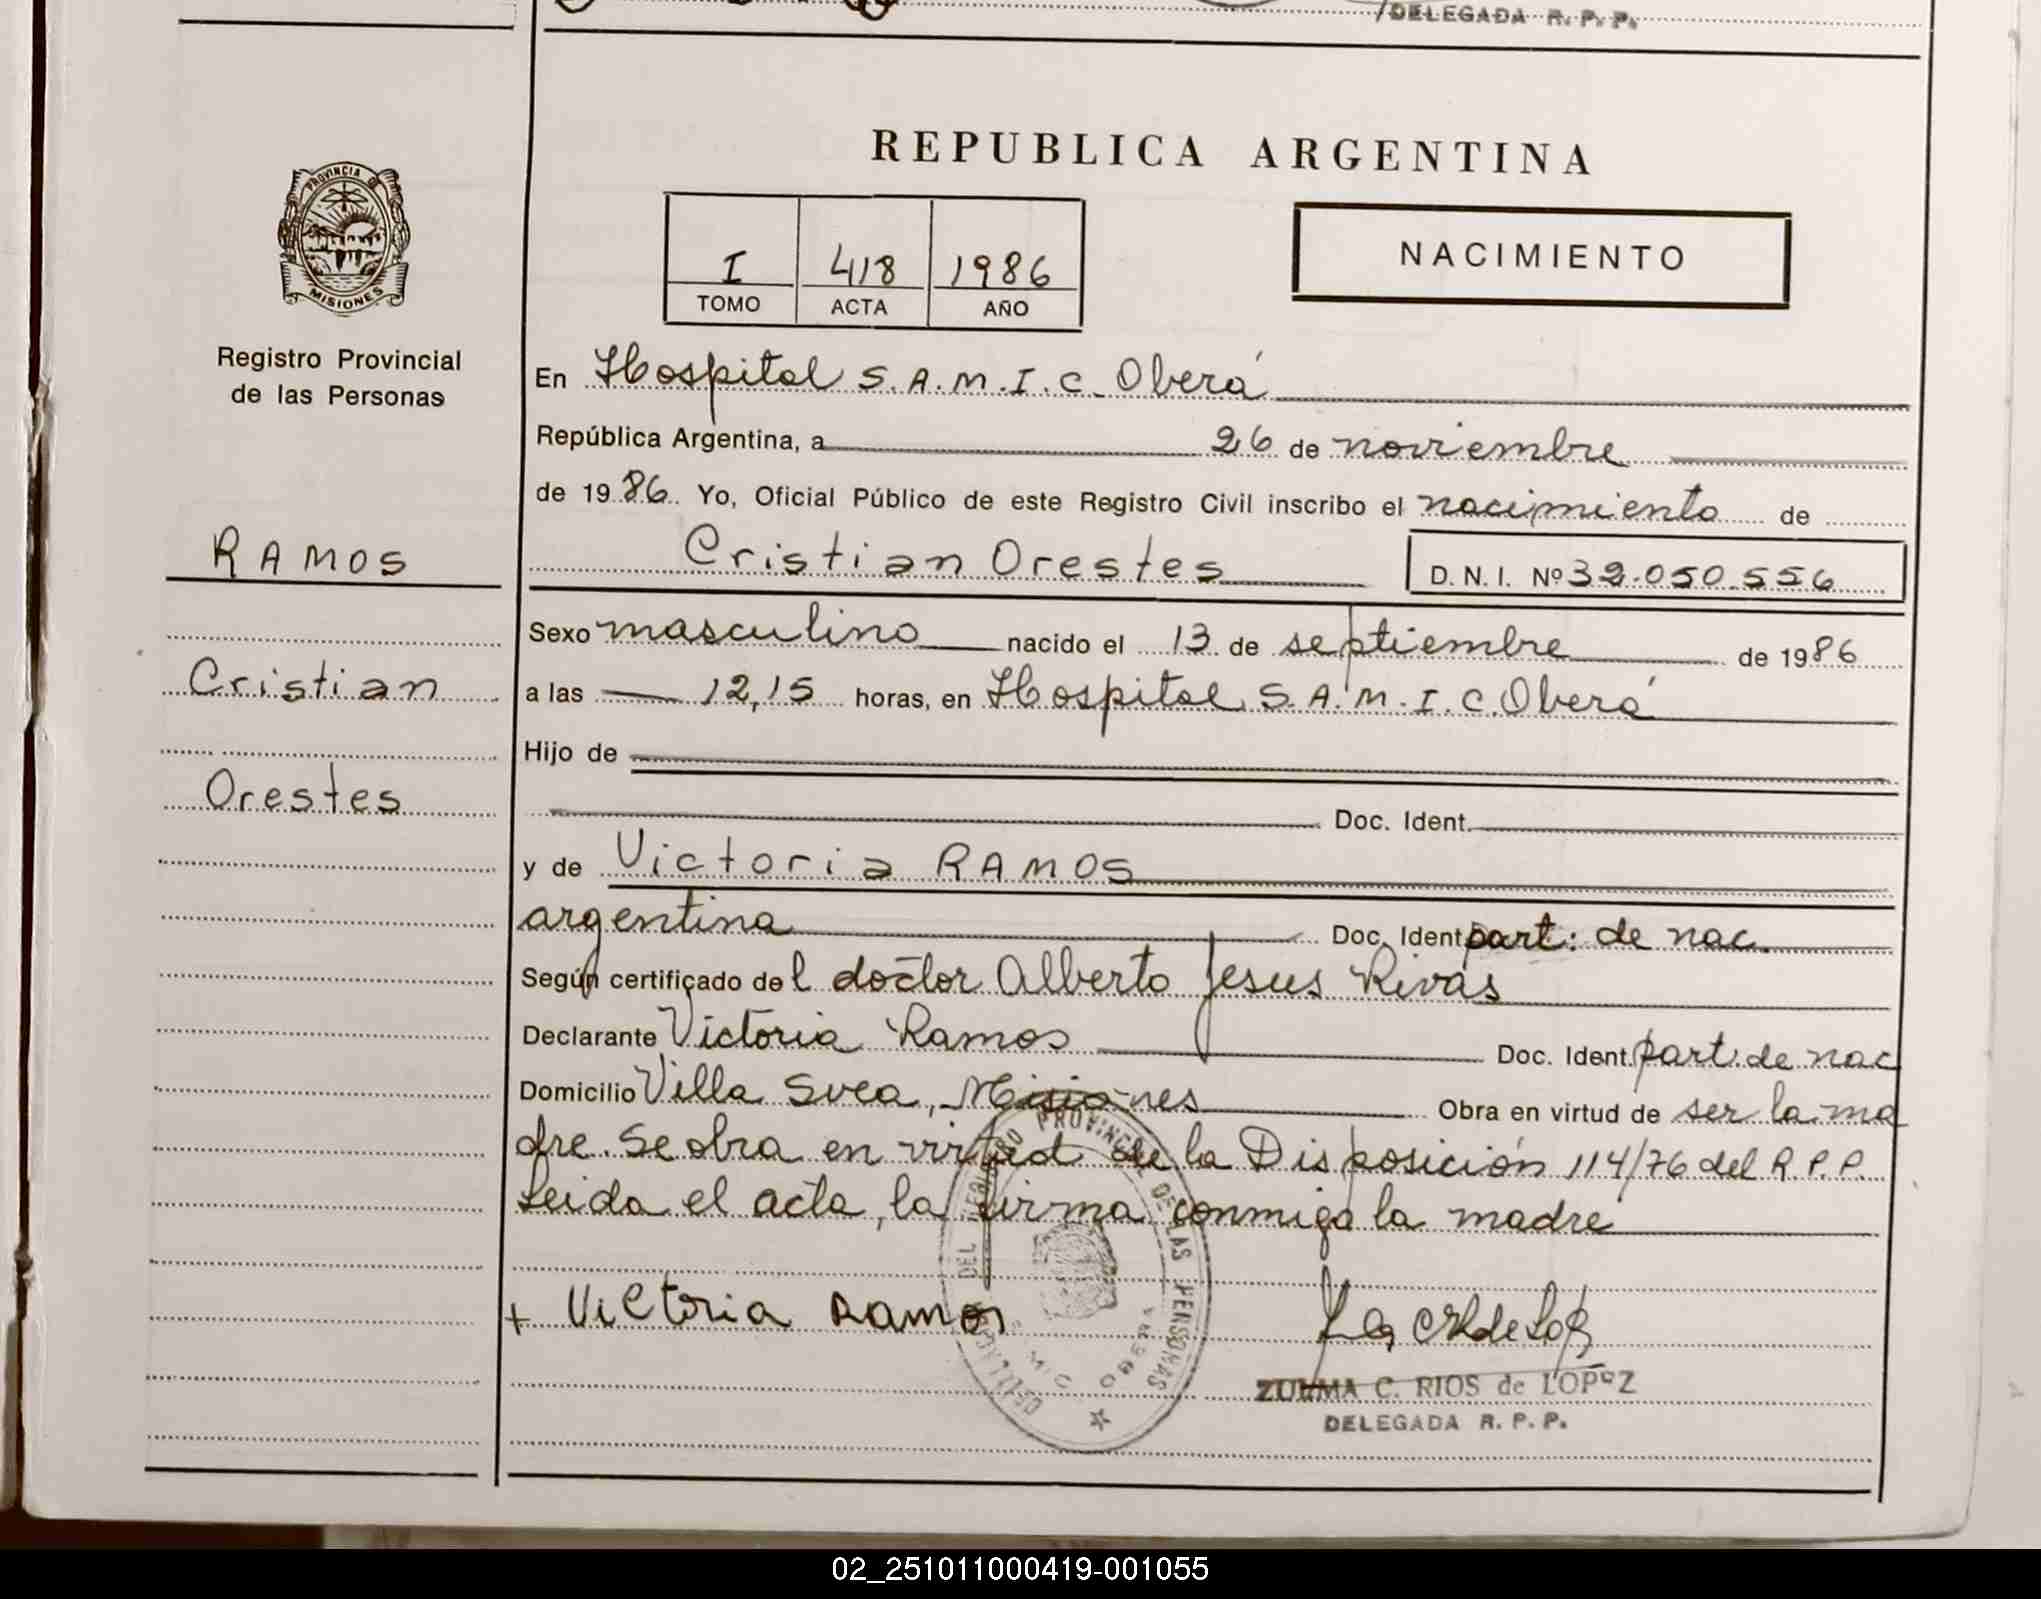 DELEGADA R. P. P.
REPUBLICA ARGENTINA
PROVINCIA DE
MISIONES
I 418 1986
TOMO ACTA AÑO
NACIMIENTO
Registro Provincial
de las Personas
En Hospital S.A.M.I.C. Oberá
República Argentina, a 26 de noviembre
de 1986. Yo, Oficial Público de este Registro Civil inscribo el nacimiento de
RAMOS
Cristian Orestes D.N.I. Nº 32.050.556
Sexo masculino nacido el 13 de septiembre de 1986
Cristian
a las 12,15 horas, en Hospital S.A.M.I.C. Oberá
Hijo de
Orestes
Doc. Ident.
y de Victoria RAMOS
argentina Doc. Ident. part: de nac.
Según certificado del doctor Alberto Jesus Rivas
Declarante Victoria Ramos Doc. Ident. part. de nac
Domicilio Villa Svea, Misiones Obra en virtud de ser la ma
dre. Se obra en virtud de la Disposición 114/76 del R.P.P.
Leida el acta, la firma conmigo la madre
+ Victoria Ramos
PROVINCIAL DE LAS PERSONAS
OBERA
ZULMA C. RIOS de LOPEZ
DELEGADA R. P. P.
02_251011000419-001055